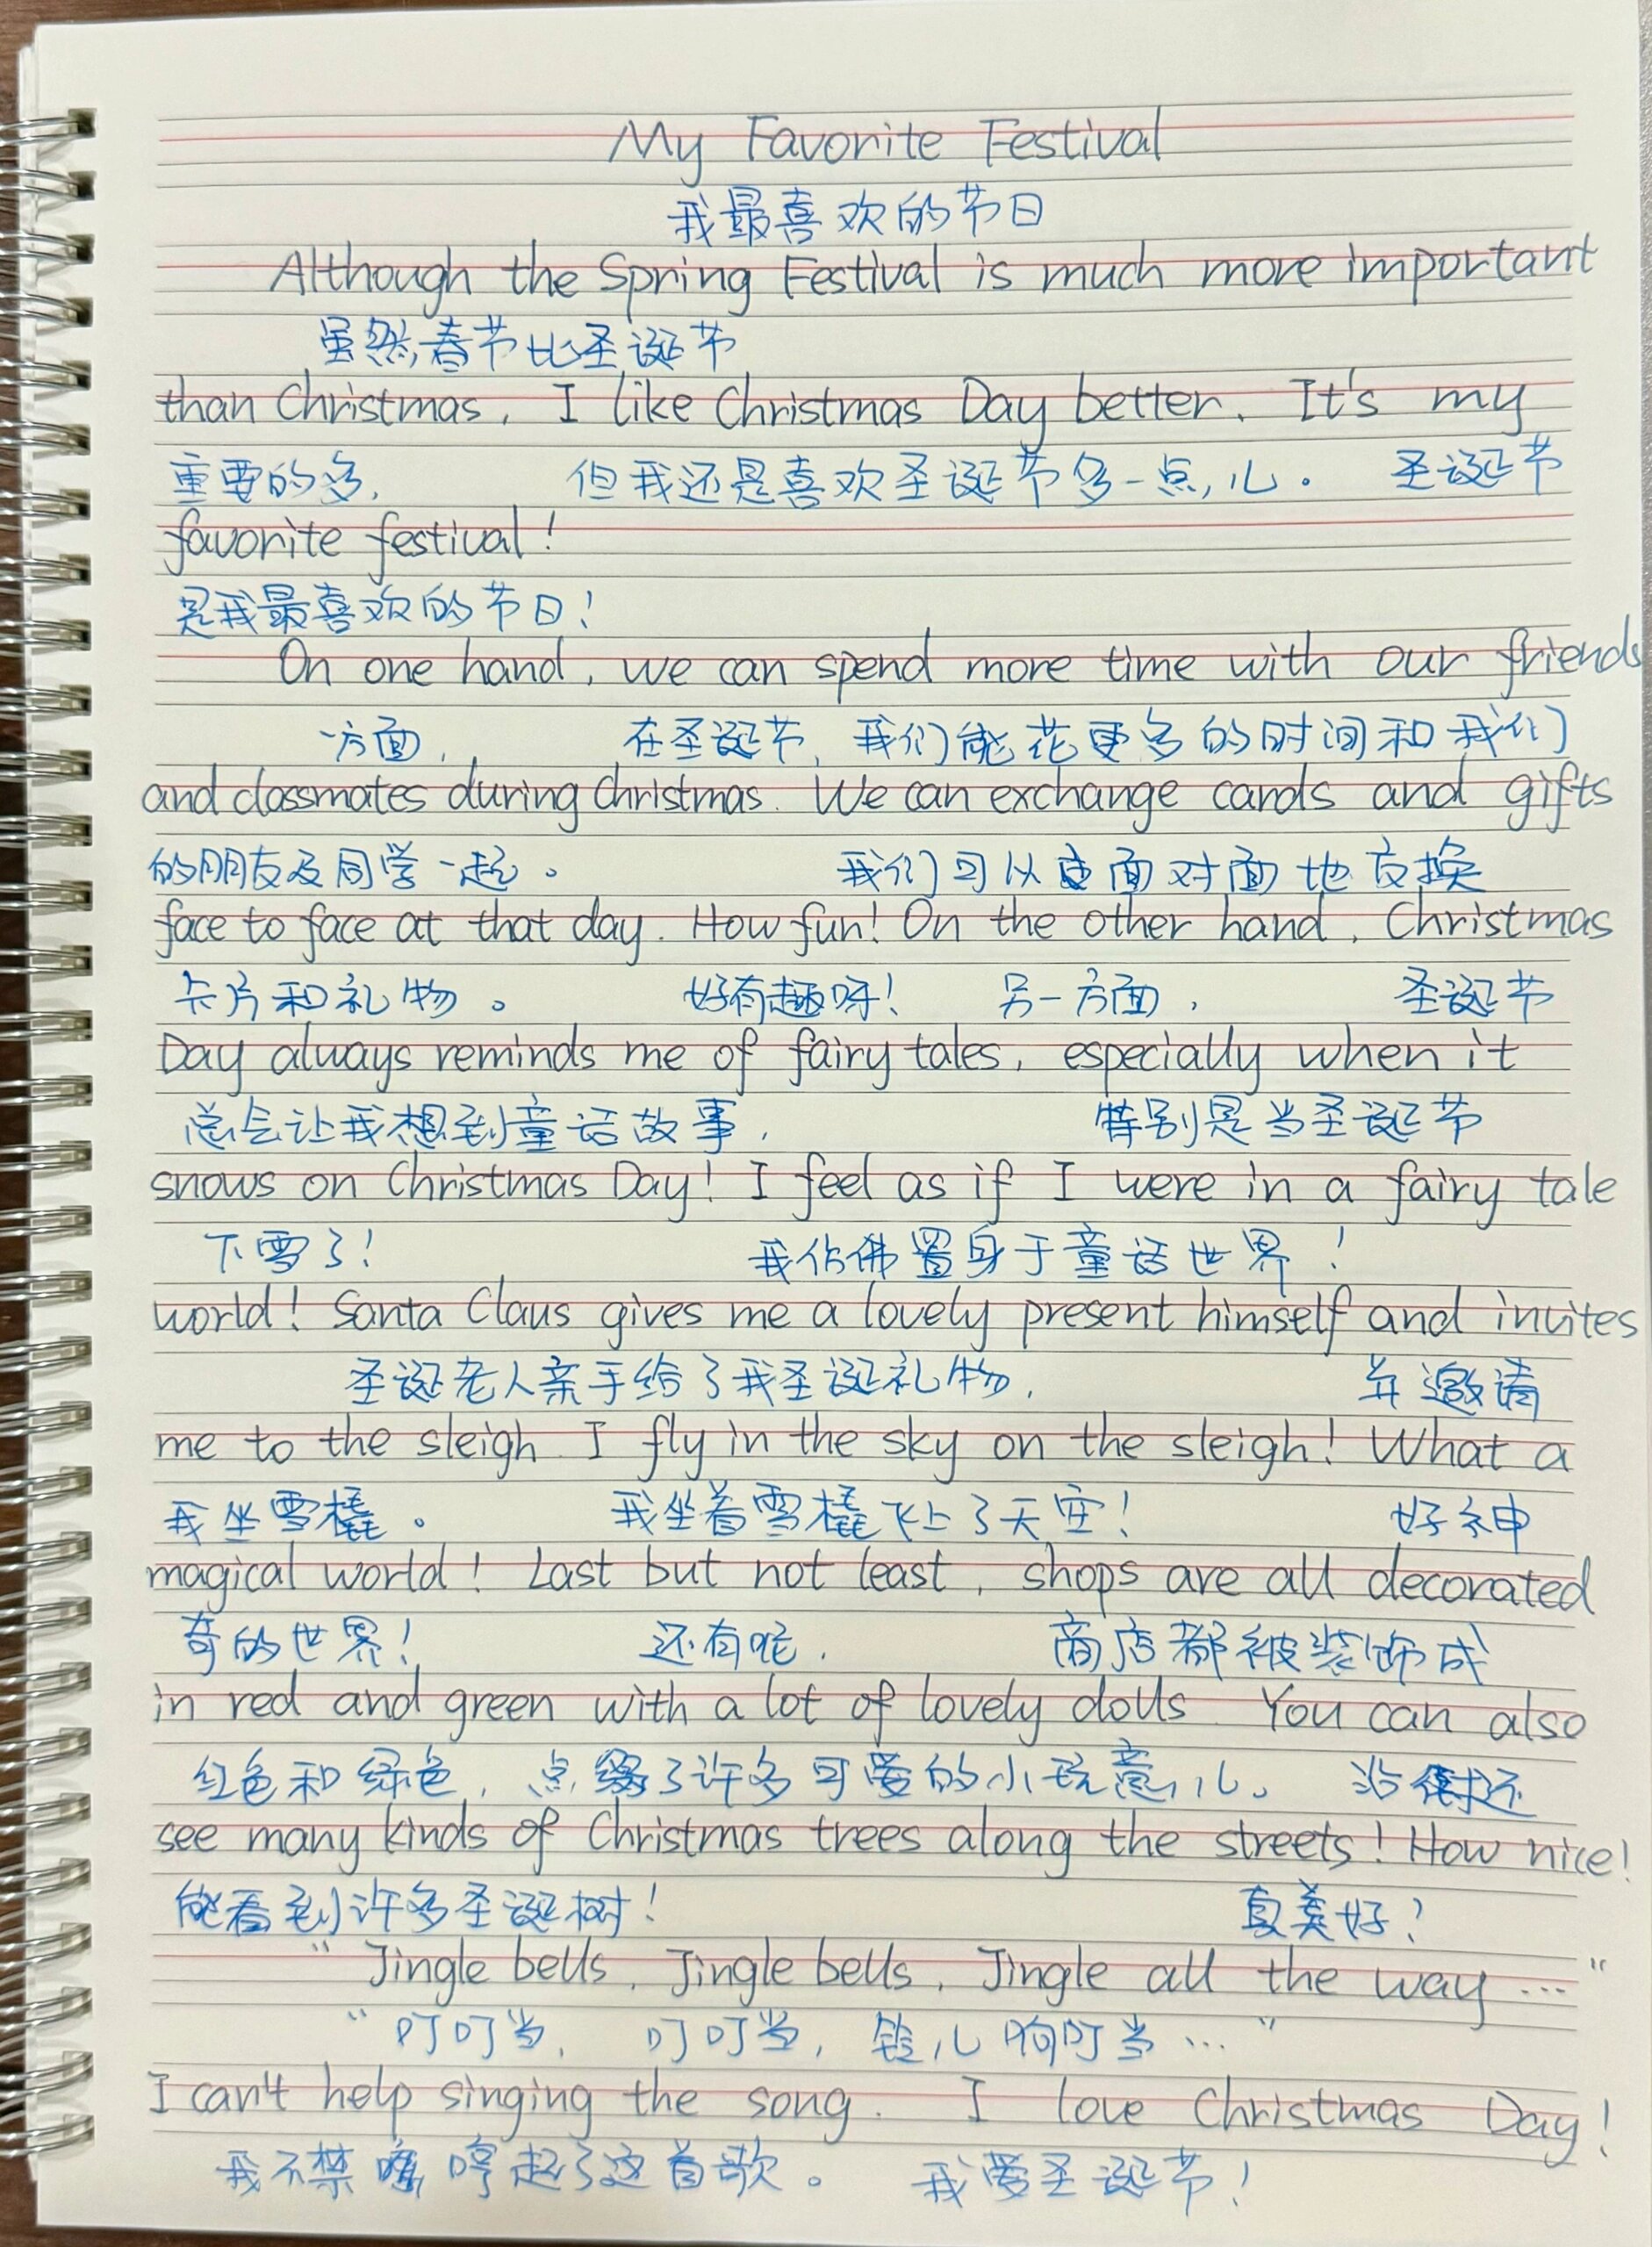 My Favorite Festival
我最喜欢的节日
Although the Spring Festival is much more important
虽然春节比圣诞节
than Christmas, I like Christmas Day better. It's my
重要的多, 但我还是喜欢圣诞节多一点儿。 圣诞节
favorite festival!
是我最喜欢的节日!
On one hand, we can spend more time with our friends
一方面, 在圣诞节, 我们能花更多的时间和我们
and classmates during Christmas. We can exchange cards and gifts
的朋友及同学一起。 我们可以面对面地交换
face to face at that day. How fun! On the other hand, Christmas
卡片和礼物。 好有趣呀! 另一方面, 圣诞节
Day always reminds me of fairy tales, especially when it
总会让我想到童话故事, 特别是当圣诞节
snows on Christmas Day! I feel as if I were in a fairy tale
下雪了! 我仿佛置身于童话世界!
world! Santa Claus gives me a lovely present himself and invites
圣诞老人亲手给了我圣诞礼物, 并邀请
me to the sleigh. I fly in the sky on the sleigh! What a
我坐雪橇。 我坐着雪橇飞上了天空! 好神
magical world! Last but not least, shops are all decorated
奇的世界! 还有呢, 商店都被装饰成
in red and green with a lot of lovely dolls. You can also
红色和绿色, 点缀了许多可爱的小玩意儿。 沿街还
see many kinds of Christmas trees along the streets! How nice!
能看到许多圣诞树! 真美好!
" Jingle bells, Jingle bells, Jingle all the way ... "
" 叮叮当, 叮叮当, 铃儿响叮当 ... "
I can't help singing the song. I love Christmas Day!
我不禁哼起了这首歌。 我爱圣诞节!